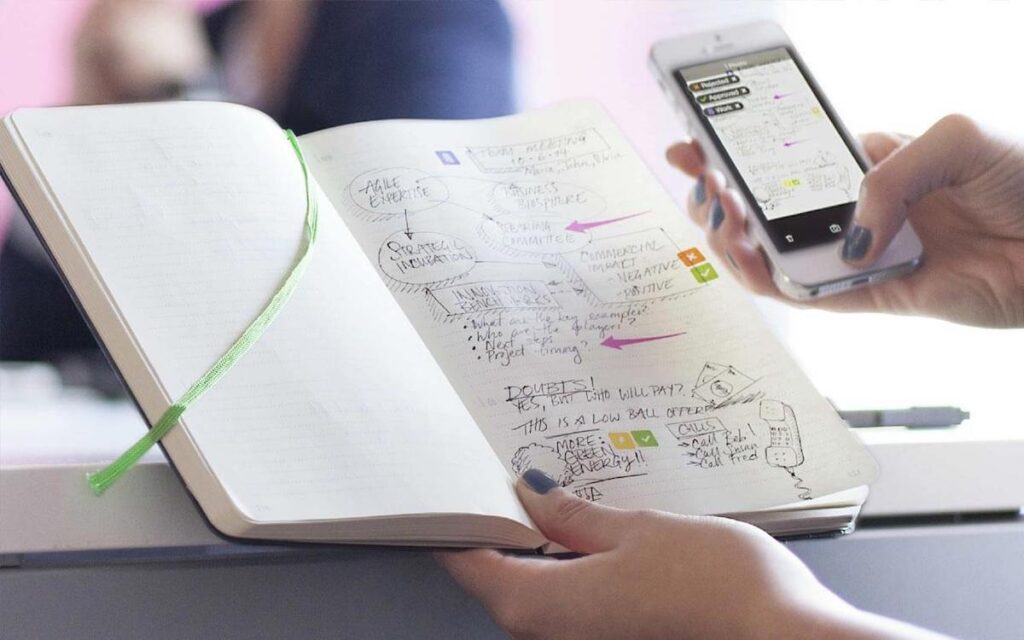 TEAM MEETING
10-6-14
AGILE
EXPERTISE
BUSINESS
BIOSPHERE
STEARING
COMMITTEE
STRATEGIC
INCUBATION
COMMERCIAL
IMPACT
- NEGATIVE
- POSITIVE
INNOVATION
BENCHMARKS
• What are the key examples?
• Who are the players?
• Next steps
• Project timing?
DOUBTS!
YES, BUT WHO WILL PAY?
THIS IS A LOW BALL OFFER
MORE:
GREEN
ENERGY!!
CALLS
Call Bob!
Call Susan
Call Fred
Rejected
Approved
Work